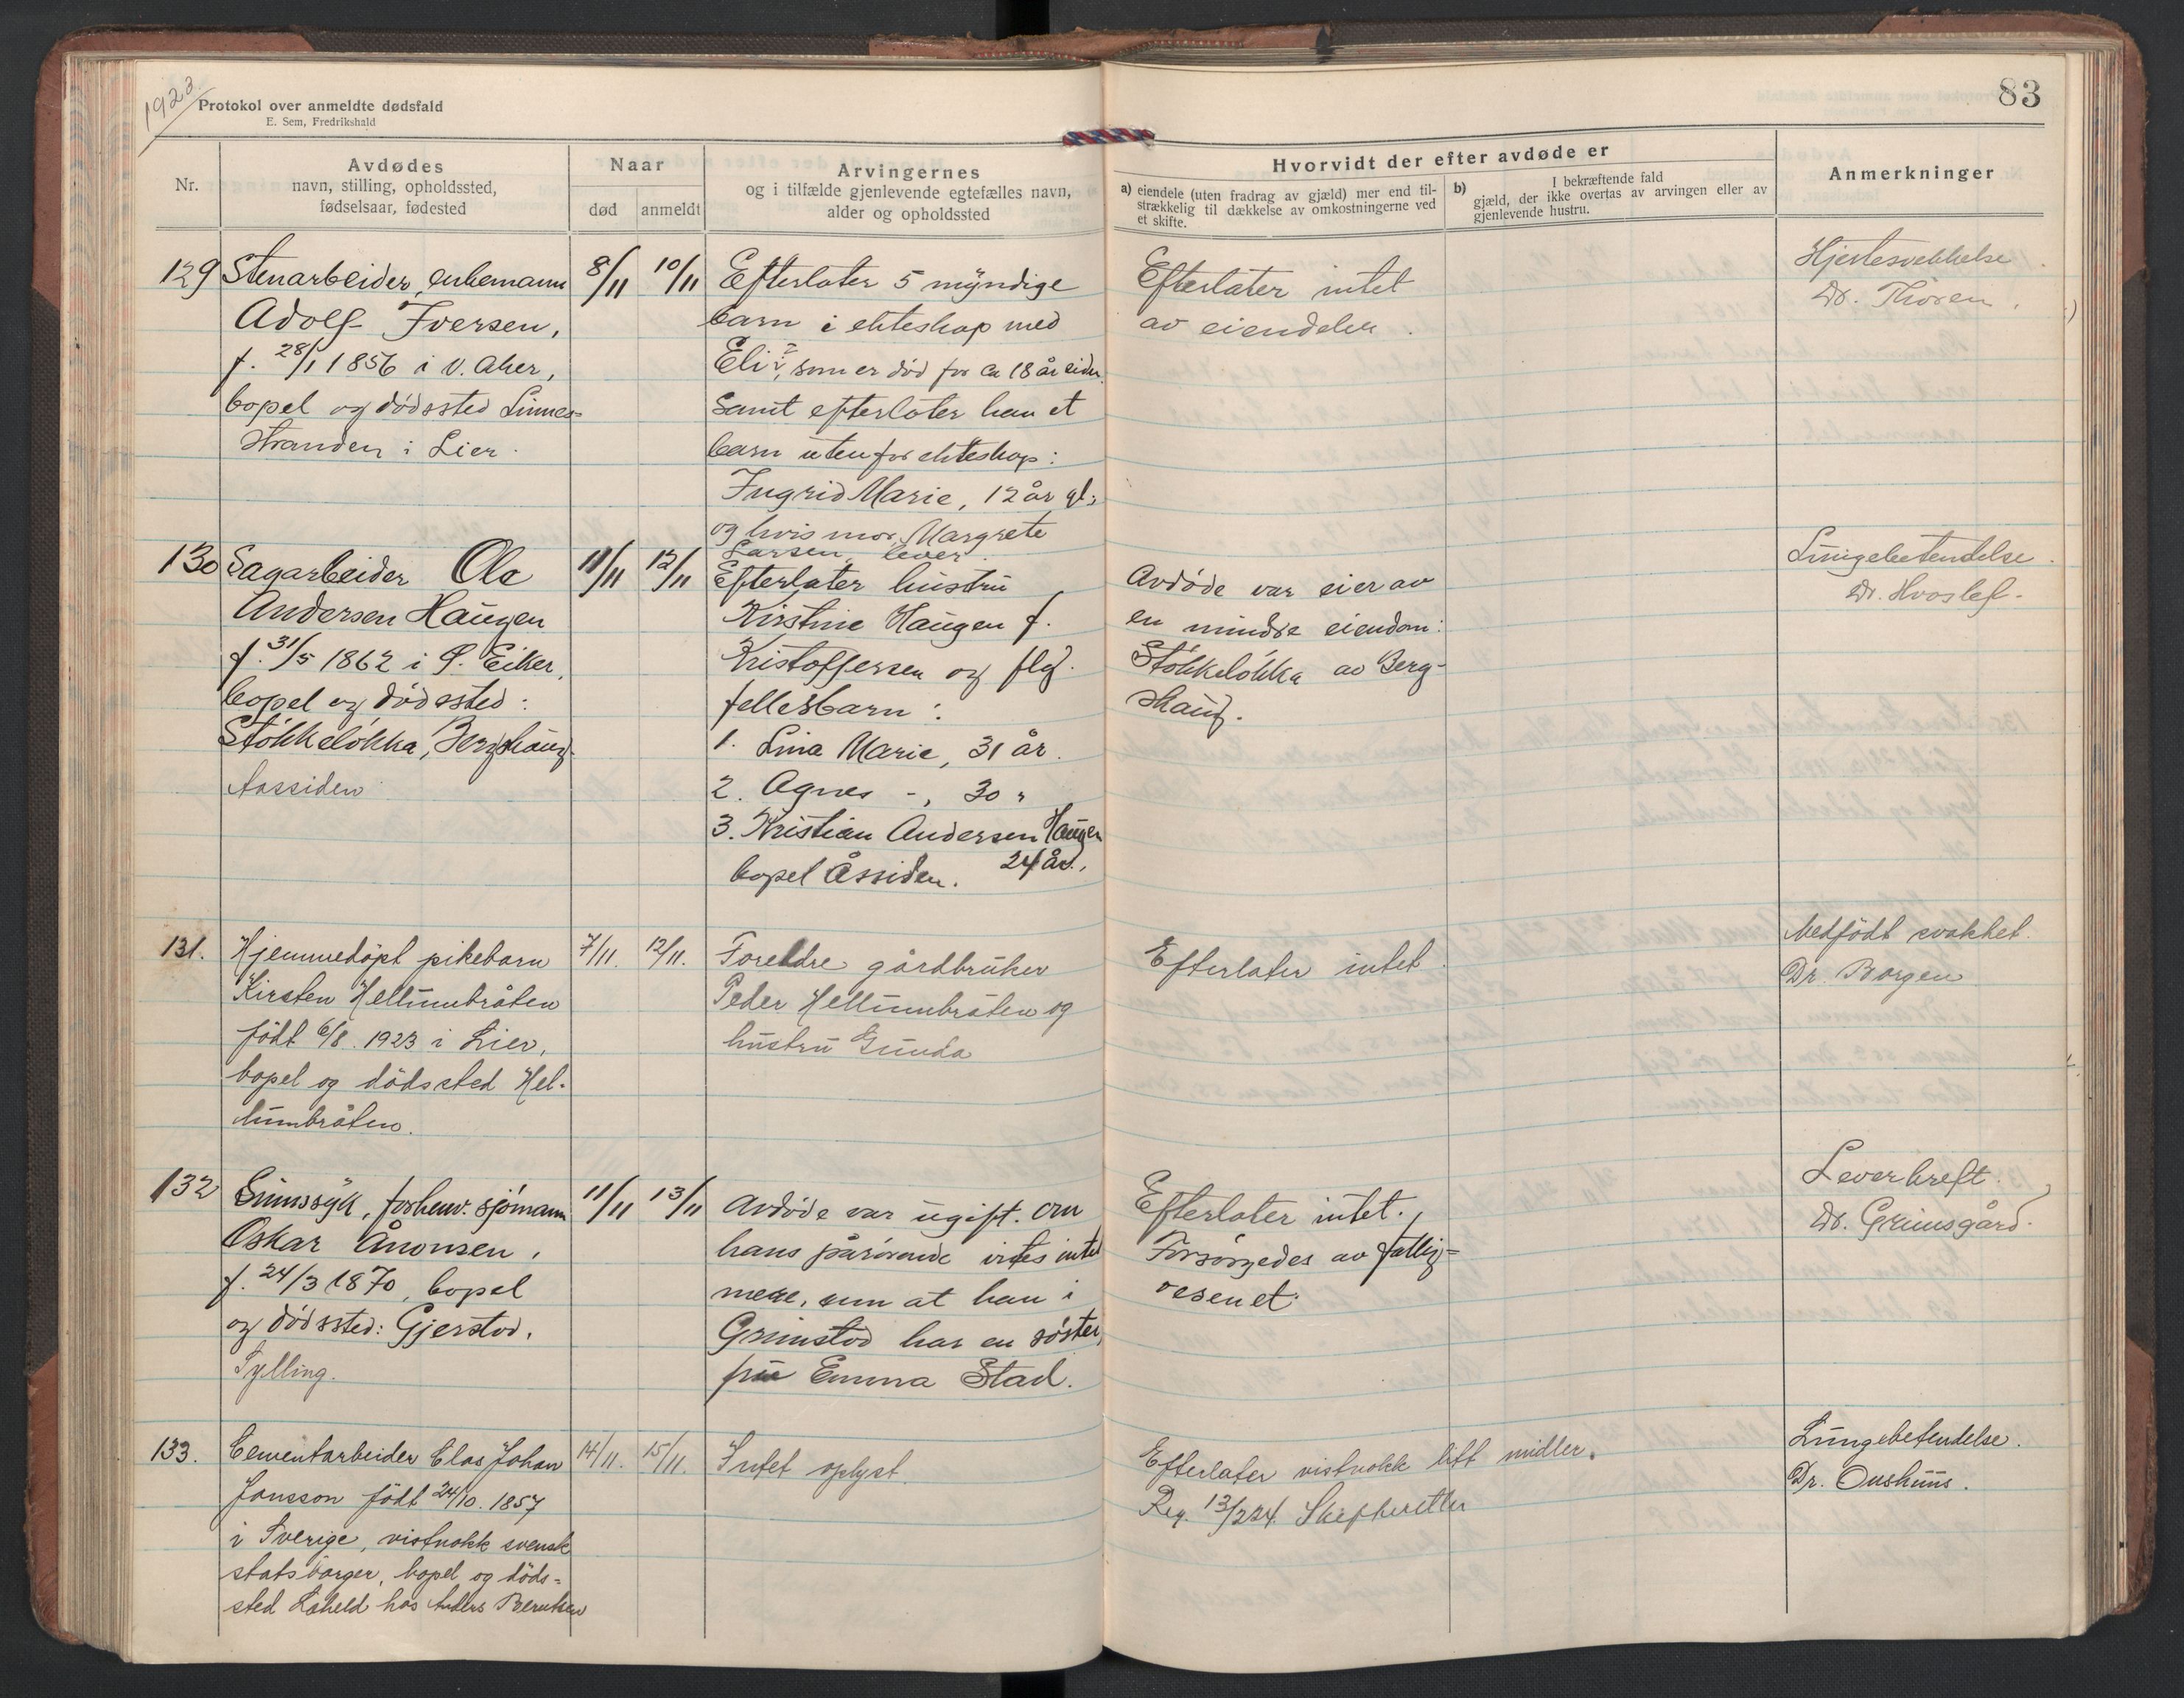 1923.
Protokol over anmeldte dødsfald
E. Sem, Fredrikshald
83
Nr.
Avdødes
navn, stilling, opholdssted,
fødselsaar, fødested
Naar
død
anmeldt
Arvingernes
og i tilfælde gjenlevende egtefælles navn,
alder og opholdssted
Hvorvidt der efter avdøde er
a) eiendele (uten fradrag av gjæld) mer end til-
strækkelig til dækkelse av omkostningerne ved
et skifte.
b) I bekræftende fald
gjæld, der ikke overtas av arvingen eller av
gjenlevende hustru.
Anmerkninger
129
Stenarbeider, enkemann
Adolf Iversen,
f. 28/1 1856 i V. Aker,
bopel og dödssted Linnes-
stranden i Lier.
8/11
10/11
Efterlater 5 myndige
barn i ekteskap med
Eli ?, som er död for ca 18 år siden.
Samt efterlater han et
barn utenfor ekteskap:
Ingrid Marie, 12 år gl.
og hvis mor, Margrete
Larsen, lever.
Efterlater intet
av eiendeler.
Hjertesvekkelse
Dr. Thoren.
130
Sagarbeider Ole
Andersen Haugen
f. 31/5 1862 i Ö. Eiker,
bopel og dödssted:
Stökkelökka, Bergskaug.
Aassiden
11/11
12/11
Efterlater hustru
Kirstine Haugen f.
Kristoffersen og flg.
fellesbarn:
1. Lina Marie, 31 år.
2. Agnes -, 30 "
3. Kristian Andersen Haugen
24 år.,
bopel Åssiden.
Avdöde var eier av
en mindre eiendom:
Stökkelökka av Berg-
skaug.
Lungebetendelse.
Dr. Hvoslef.
131.
Hjemmedöpt pikebarn
Kirsten Hellumbråten
födt 6/8. 1923 i Lier,
bopel og dödssted Hel-
lumbråten.
7/11.
12/11.
Foreldre gårdbruker
Peder Hellumbråten og
hustru Gunda
Efterlater intet.
Medfödt svakhet.
Dr. Borgen
132
Sinnssyk, forhenv. sjömann
Oskar Ånonsen,
f. 24/3 1870, bopel
og dödssted: Gjerstad,
Sylling.
11/11
13/11
Avdöde var ugift. Om
hans pårörende vites intet
mere, enn at han i
Grimstad har en söster,
fru Emma Stad.
Efterlater intet.
Forsörgedes av fattig-
vesenet.
Leverkreft.
Dr. Grimsgård.
133.
Cementarbeider Claes Johan
Jonsson födt 24/10. 1857
i Sverige, vistnokk svensk
statsborger, bopel og döds-
sted Laheld hos Anders Berntsen
14/11.
15/11.
Intet oplyst.
Efterlater vistnokk litt midler.
Reg. 13/2 24. Skifteretten
Lungebetendelse.
Dr. Onshuus.